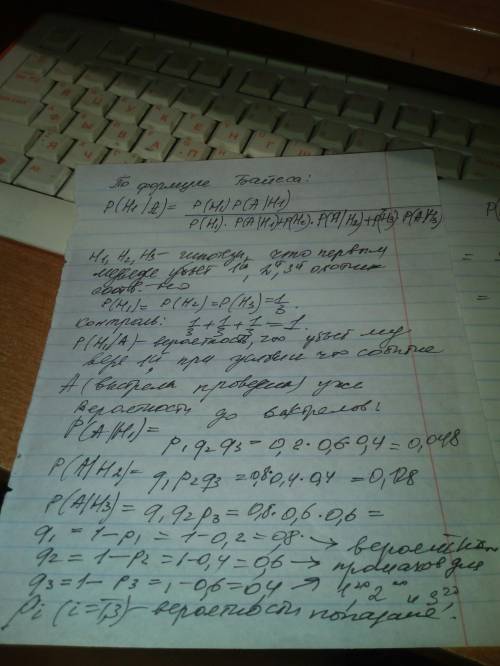 По формуле Байеса:
P(H1/A) = P(H1) P(A|H1)
P(H1)·P(A|H1)+P(H2)·P(A|H2)+P(H3)·P(A|H3)
H1, H2, H3 – гипотезы, что первым
медведя убьет 1й, 2й, 3й охотник
соотв-но
P(H1) = P(H2) = P(H3) = 1/3.
Контроль: 1/3 + 1/3 + 1/3 = 1.
P(H1/A) – вероятность, что убьет мед
ведя 1й при условии что событие
A (выстрелы проведены) уже
Вероятности до выстрелов:
P(A|H1) =
p1 q2 q3 = 0,2·0,6·0,4 = 0,048
P(A|H2) = q1 p2 q3 = 0,8·0,4·0,4 = 0,128
P(A|H3) = q1 q2 p3 = 0,8·0,6·0,6 =
q1 = 1 – p1 = 1 – 0,2 = 0,8 → вероятн
q2 = 1 – p2 = 1 – 0,4 = 0,6 → промахов для
q3 = 1 – p3 = 1 – 0,6 = 0,4 → 1го 2го и 3го
Pi (i = 1,3) – вероятности попадане